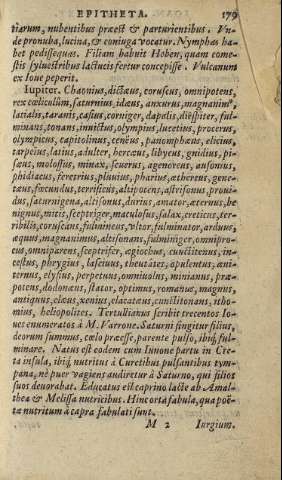 EPITHETA. 179
tiarum, nubentibus præest & parturientibus. Vn-
de pronuba, lucina, & coniuga vocatur. Nymphas ha-
bet pedissequas. Filiam habuit Heben, quam come-
stis syluestribus lactucis fertur concepisse. Vulcanum
ex Ioue peperit.
Iupiter. Chaonius, dictæus, coruscus, omnipotens,
rex cœlicolûm, saturnius, idæus, anxurus, magnanim⁹,
latialis, taranis, casius, corniger, dapalis, diespiter, ful-
minans, tonans, inuictus, olympius, lucetius, procerus,
olympicus, capitolinus, cenæus, panomphæus, elicius,
tarpeius, latius, adulter, herceus, libycus, gnidius, pi-
sæus, molossus, minax, seuerus, agenoreus, ausonius,
phidiacus, feretrius, pluuius, pharius, æthereus, gene-
tæus, fœcundus, terrificus, altipotens, astrisonus, proui-
dus, saturnigena, altisonus, durius, amator, æternus, be-
nignus, mitis, sceptriger, maculosus, salax, creticus, ter-
ribilis, coruscans, fulmineus, vltor, fulminator, arduus,
æquus, magnanimus, altisonans, fulminiger, omnipro-
cus, omniparens, sceptrifer, ægiochus, cunctitenens, in-
cestus, phrygius, lasciuus, theutates, opulentus, æui-
ternus, elysius, perpetuus, omniuolus, minianus, præ-
potens, dodonæus, stator, optimus, romanus, magnus,
antiquus, elous, xenius, elacatæus, cunctitonans, itho-
mius, heliopolites. Tertullianus scribit trecentos Io-
ues enumeratos à M. Varrone. Saturni fingitur filius,
deorum summus, cœlo præesse, parente pulso, ibiq́; ful-
minare. Natus est eodem cum Iunone partu in Cre-
ta insula, ibiq́; nutritus à Curetibus pulsantibus tym-
pana, nè puer vagiens audiretur à Saturno, qui filios
suos deuorabat. Educatus est caprino lacte ab Amal-
thea & Melissa nutricibus. Hinc orta fabula, qua poë-
ta nutritum à capra fabulati sunt.
M 2 Iurgium.